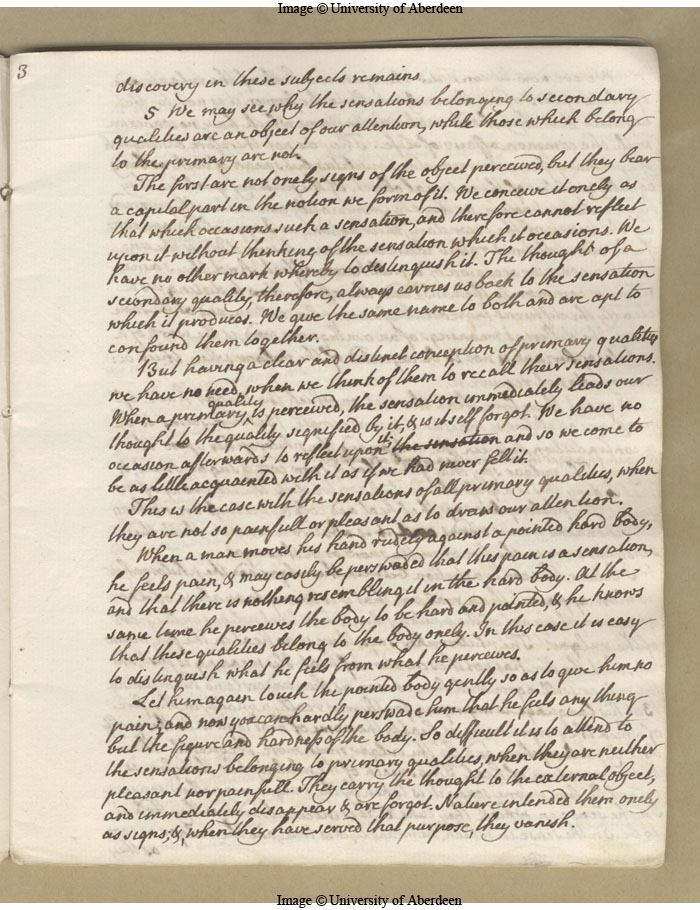 Image © University of Aberdeen
3
discovery in these subjects remains
5 We may see why the sensations belonging to secondary
qualities are an object of our attention, while those which belong
to the primary are not.
The first are not onely signs of the object perceived, but they bear
a capital part in the notion we form of it. We conceive it onely as
that which occasions such a sensation, and therefore cannot reflect
upon it without thinking of the sensation which it occasions. We
have no other mark whereby to destinguish it. The thought of a
secondary quality, therefore, always carries us back to the sensation
which it produces. We give the same name to both and are apt to
confound them together.
But having a clear and distinct conception of primary qualities
we have no need, when we think of them to recall their sensations.
When a primary quality is perceived, the sensation immediately leads our
thought to the quality signified by it, & is itself forgot. We have no
occasion afterwards to reflect upon it the sensation and so we come to
be as little acquainted with it as if we had never felt it.
This is the case with the sensations of all primary qualities, when
they are not so painfull or pleasant as to draw our attention.
When a man moves his hand rudely against a pointed hard body,
he feels pain, & may easily be perswaded that this pain is a sensation,
and that there is nothing resembling it in the hard body. At the
same time he perceives the body to be hard and pointed, & he knows
that these qualities belong to the body onely. In this case it is easy
to distinguish what he feels from what he perceives.
Let him again touch the pointed body gently so as to give him no
pain; and now you can hardly perswade him that he feels any thing
but the figure and hardness of the body. So difficult it is to attend to
the sensations belonging to primary qualities, when they are neither
pleasant nor painfull. They carry the thought to the external object,
and immediately disappear & are forgot. Nature intended them onely
as signs; &, when they have served that purpose, they vanish.
Image © University of Aberdeen